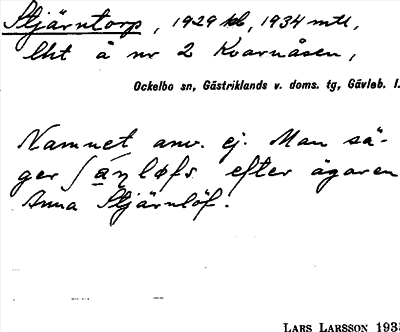 Stjärntorp, 1929 kb, 1934 mtl,
lht å nr 2 Kvarnåsen,
Ockelbo sn, Gästriklands v. doms. tg, Gävleb. l.
Namnet anv. ej. Man sä-
ger efter ägaren
Anna Stjärnlöf.
LARS LARSSON 193